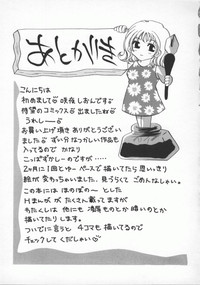 あとがき
こんにちは
初めまして♪ 咲夜 しおんです♪
待望のコミックス 出ましたね♪
うれしー♪
お買い上げ頂き ありがとうございました♪ ずい分なつかしい作品も
入ってるので かなり
こっぱずかしーのですが……
2ヶ月に1回とゆーペースで描いてたら思いっきり
絵が変わっちゃいました。見づらくて ごめんなしゃい。
この本には ほのぼのー とした
Hまんがが たくさん載ってますが
もたくしは 他にも 凌辱ものとか 暗いのとか
描いてたりします。
ついでに言うと 4コマも 描いてるので
チェックして くだしゃい♪